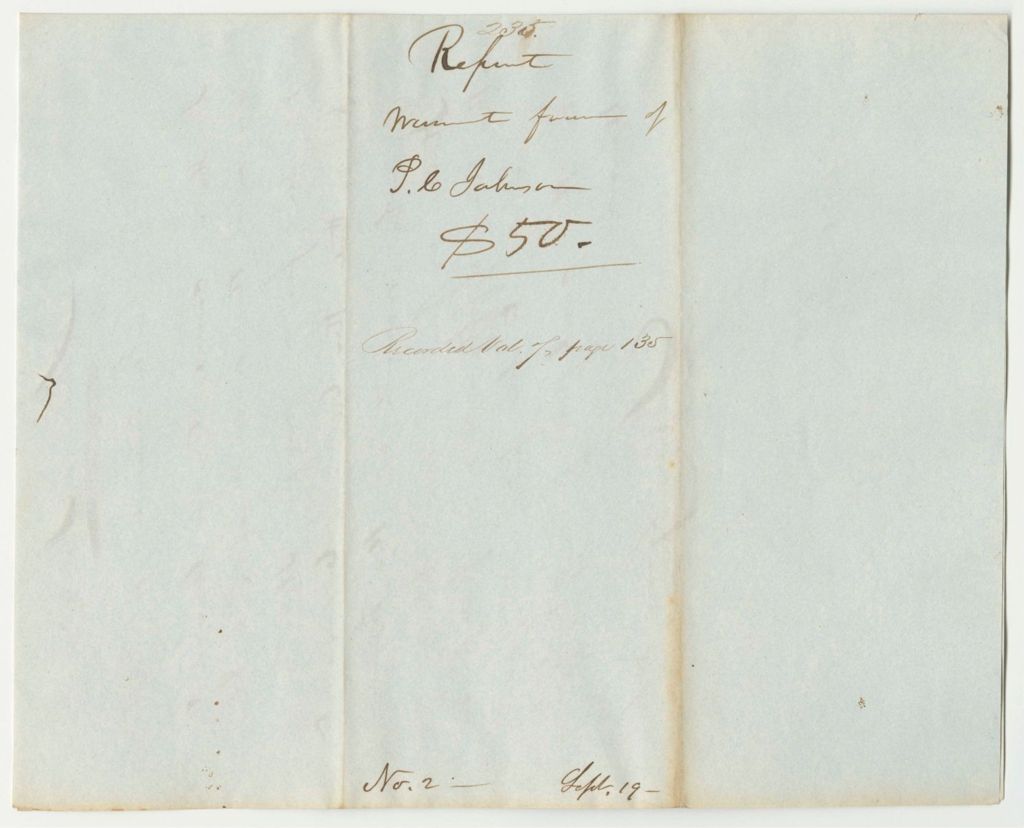 235.
Report
Warrant favor of
P. C Johnson
$50.
Recorded Vol. 7, page 135
No. 2 — Sept. 19 –